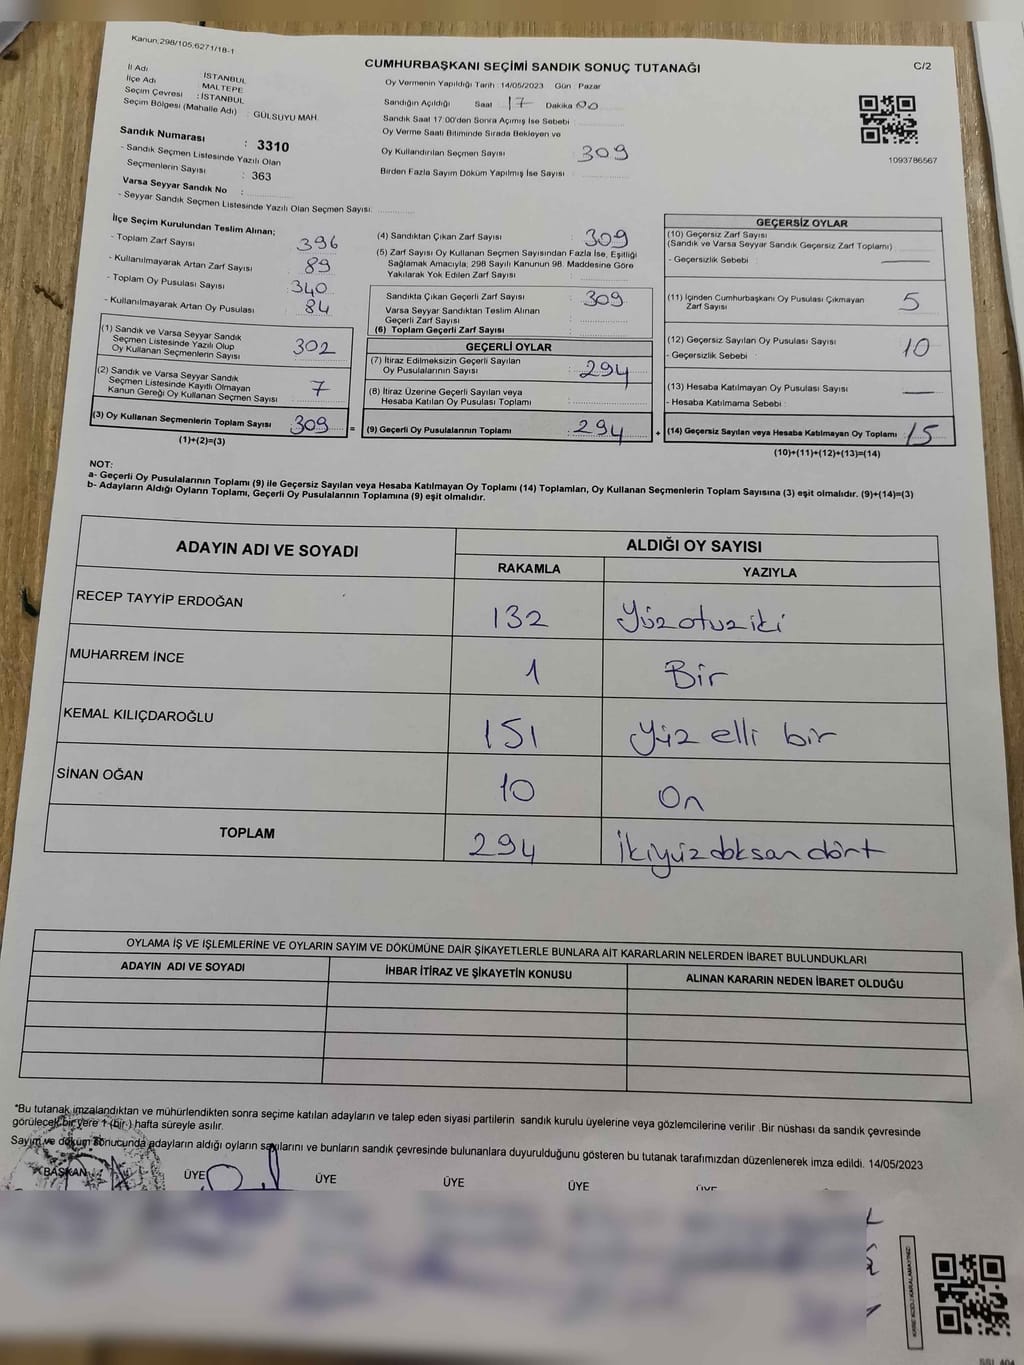 Kanun;298/105,6271/18-1
CUMHURBAŞKANI SEÇİMİ SANDIK SONUÇ TUTANAĞI
C/2
İl Adı İSTANBUL
İlçe Adı MALTEPE
Seçim Çevresi : İSTANBUL
Seçim Bölgesi (Mahalle Adı) : GÜLSUYU MAH.
Sandık Numarası : 3310
- Sandık Seçmen Listesinde Yazılı Olan
Seçmenlerin Sayısı : 363
Varsa Seyyar Sandık No :
- Seyyar Sandık Seçmen Listesinde Yazılı Olan Seçmen Sayısı:
Oy Vermenin Yapıldığı Tarih : 14/05/2023 Gün : Pazar
Sandığın Açıldığı Saat 17 Dakika 00
Sandık Saat 17:00'den Sonra Açımış İse Sebebi :
Oy Verme Saati Bitiminde Sırada Bekleyen ve
Oy Kullandırılan Seçmen Sayısı : 309
Birden Fazla Sayım Döküm Yapılmış İse Sayısı :
1093786567
İlçe Seçim Kurulundan Teslim Alınan;
- Toplam Zarf Sayısı : 396
- Kullanılmayarak Artan Zarf Sayısı : 89
- Toplam Oy Pusulası Sayısı : 340
- Kullanılmayarak Artan Oy Pusulası : 84
(1) Sandık ve Varsa Seyyar Sandık
Seçmen Listesinde Yazılı Olup
Oy Kullanan Seçmenlerin Sayısı : 302
(2) Sandık ve Varsa Seyyar Sandık
Seçmen Listesinde Kayıtlı Olmayan
Kanun Gereği Oy Kullanan Seçmen Sayısı : 7
(3) Oy Kullanan Seçmenlerin Toplam Sayısı : 309 =
(1)+(2)=(3)
(4) Sandıktan Çıkan Zarf Sayısı : 309
(5) Zarf Sayısı Oy Kullanan Seçmen Sayısından Fazla İse, Eşitliği
Sağlamak Amacıyla; 298 Sayılı Kanunun 98. Maddesine Göre
Yakılarak Yok Edilen Zarf Sayısı :
Sandıkta Çıkan Geçerli Zarf Sayısı : 309
Varsa Seyyar Sandıktan Teslim Alınan
Geçerli Zarf Sayısı :
(6) Toplam Geçerli Zarf Sayısı :
GEÇERLİ OYLAR
(7) İtiraz Edilmeksizin Geçerli Sayılan
Oy Pusulalarının Sayısı : 294
(8) İtiraz Üzerine Geçerli Sayılan veya
Hesaba Katılan Oy Pusulası Toplamı :
(9) Geçerli Oy Pusulalarının Toplamı : 294 +
GEÇERSİZ OYLAR
(10) Geçersiz Zarf Sayısı
(Sandık ve Varsa Seyyar Sandık Geçersiz Zarf Toplamı)
- Geçersizlik Sebebi :
(11) İçinden Cumhurbaşkanı Oy Pusulası Çıkmayan
Zarf Sayısı : 5
(12) Geçersiz Sayılan Oy Pusulası Sayısı : 10
- Geçersizlik Sebebi :
(13) Hesaba Katılmayan Oy Pusulası Sayısı :
- Hesaba Katılmama Sebebi :
(14) Geçersiz Sayılan veya Hesaba Katılmayan Oy Toplamı : 15
(10)+(11)+(12)+(13)=(14)
NOT:
a- Geçerli Oy Pusulalarının Toplamı (9) ile Geçersiz Sayılan veya Hesaba Katılmayan Oy Toplamı (14) Toplamları, Oy Kullanan Seçmenlerin Toplam Sayısına (3) eşit olmalıdır. (9)+(14)=(3)
b- Adayların Aldığı Oyların Toplamı, Geçerli Oy Pusulalarının Toplamına (9) eşit olmalıdır.
ADAYIN ADI VE SOYADI ALDIĞI OY SAYISI
RAKAMLA YAZIYLA
RECEP TAYYİP ERDOĞAN 132 Yüzotuziki
MUHARREM İNCE 1 Bir
KEMAL KILIÇDAROĞLU 151 Yüz elli bir
SİNAN OĞAN 10 On
TOPLAM 294 İkiyüzdoksandört
OYLAMA İŞ VE İŞLEMLERİNE VE OYLARIN SAYIM VE DÖKÜMÜNE DAİR ŞİKAYETLERLE BUNLARA AİT KARARLARIN NELERDEN İBARET BULUNDUKLARI
ADAYIN ADI VE SOYADI İHBAR İTİRAZ VE ŞİKAYETİN KONUSU ALINAN KARARIN NEDEN İBARET OLDUĞU
*Bu tutanak imzalandıktan ve mühürlendikten sonra seçime katılan adayların ve talep eden siyasi partilerin sandık kurulu üyelerine veya gözlemcilerine verilir .Bir nüshası da sandık çevresinde
görülecek bir yere 1 (bir ) hafta süreyle asılır.
Sayım ve döküm sonucunda adayların aldığı oyların sayılarını ve bunların sandık çevresinde bulunanlara duyurulduğunu gösteren bu tutanak tarafımızdan düzenlenerek imza edildi. 14/05/2023
BAŞKAN ÜYE ÜYE ÜYE ÜYE ÜYE